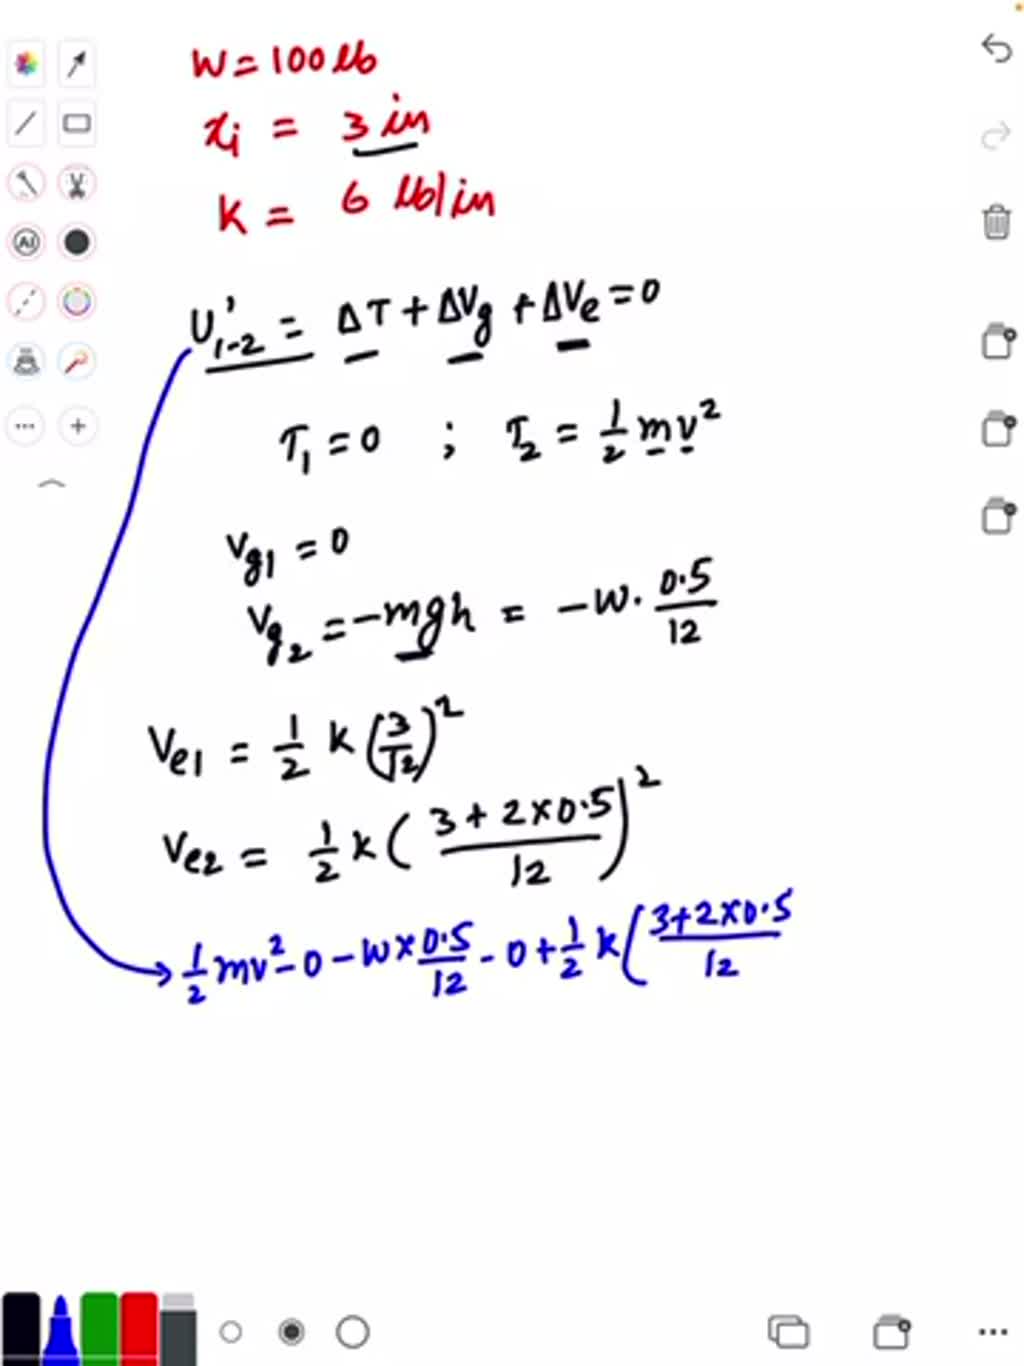 W = 100 lb
xi = 3 in
K = 6 lb/in
U'1-2 = ΔT + ΔVg + ΔVe = 0
T1 = 0 ; T2 = 1/2 mv²
Vg1 = 0
Vg2 = -mgh = -W. 0.5/12
Ve1 = 1/2 K (3/12)²
Ve2 = 1/2 K (3+2×0.5/12)²
1/2 mv² - 0 - W × 0.5/12 - 0 + 1/2 K (3+2×0.5/12